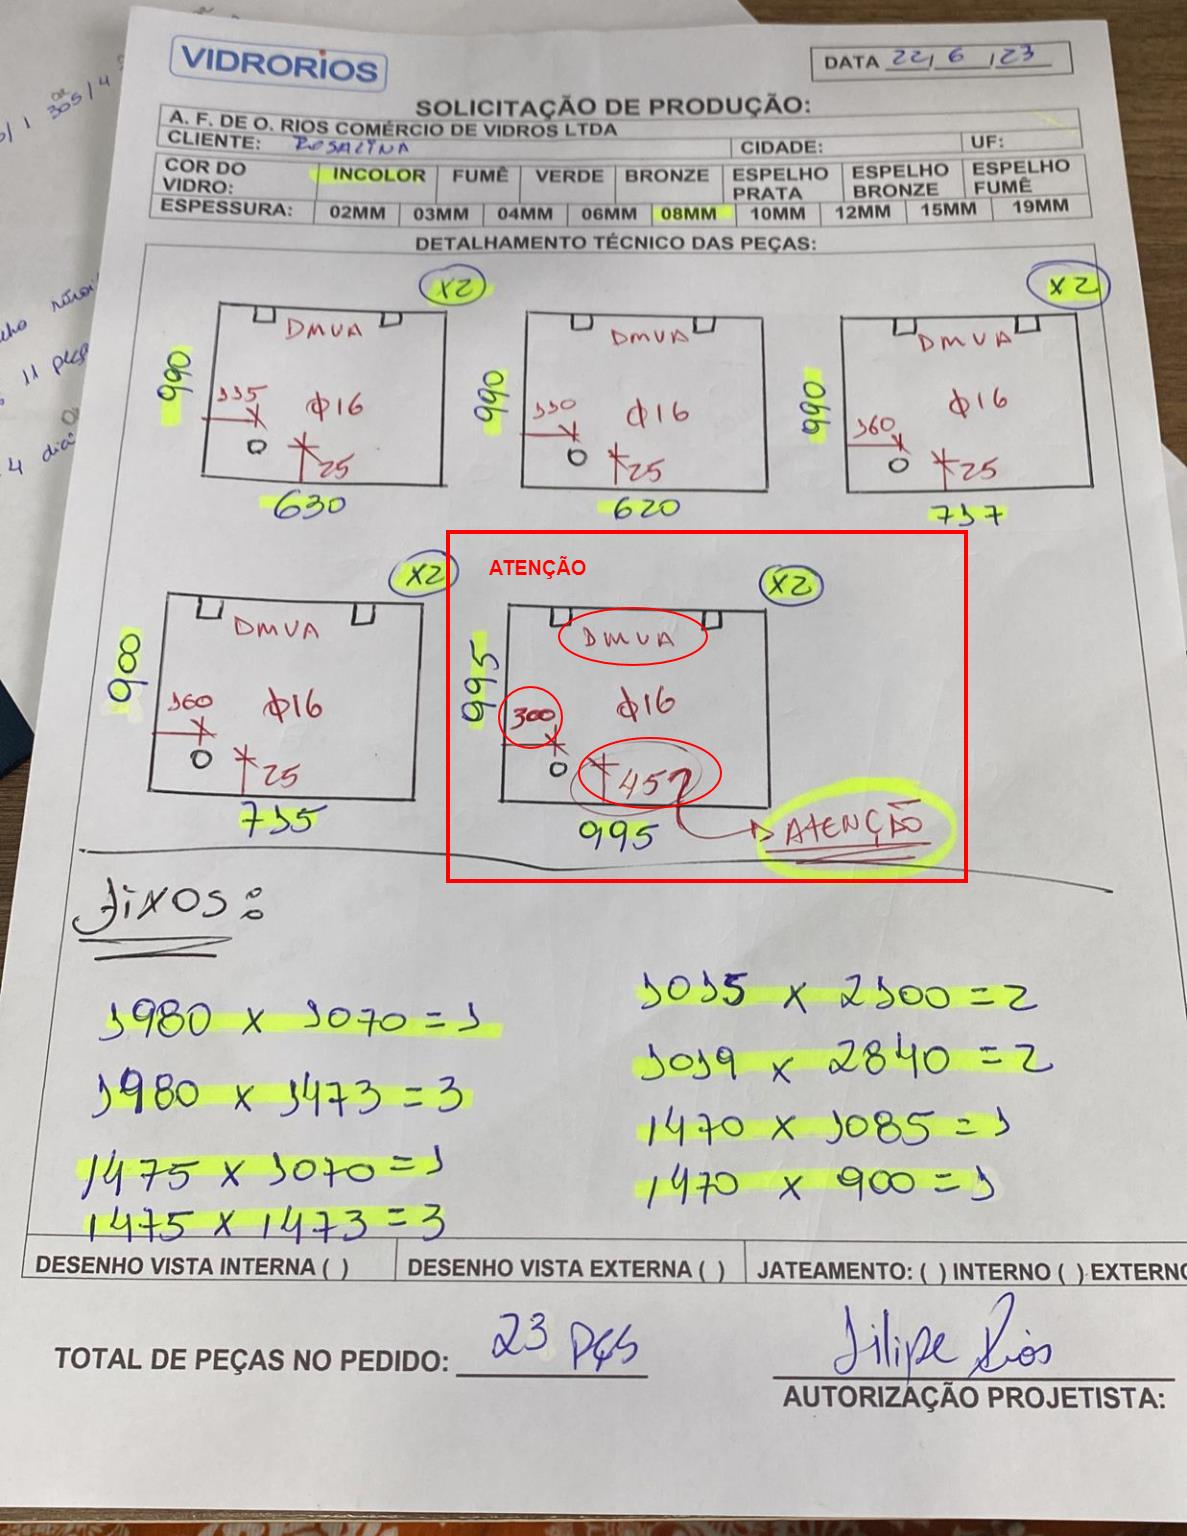 VIDRORIOS
DATA 22/ 6 /23
SOLICITAÇÃO DE PRODUÇÃO:
A. F. DE O. RIOS COMÉRCIO DE VIDROS LTDA
CLIENTE: ROSALINA CIDADE: UF:
COR DO VIDRO: INCOLOR FUMÊ VERDE BRONZE ESPELHO PRATA ESPELHO BRONZE ESPELHO FUMÊ
ESPESSURA: 02MM 03MM 04MM 06MM 08MM 10MM 12MM 15MM 19MM
DETALHAMENTO TÉCNICO DAS PEÇAS:
X2
DMUA
990
135
φ16
25
630
DMUA
990
110
φ16
25
620
X2
DMUA
990
160
φ16
25
717
X2
DMUA
900
160
φ16
25
715
ATENÇÃO
X2
DMUA
995
300
φ16
457
995
ATENÇÃO
FIXOS:
1980 X 1070 = 1
1980 X 1473 = 3
1475 X 1070 = 1
1475 X 1473 = 3
1015 X 2100 = 2
1019 X 2840 = 2
1470 X 1085 = 1
1470 X 900 = 1
DESENHO VISTA INTERNA ( ) DESENHO VISTA EXTERNA ( ) JATEAMENTO: ( ) INTERNO ( ) EXTERNO
TOTAL DE PEÇAS NO PEDIDO: 23 PÇS
Filipe Rios
AUTORIZAÇÃO PROJETISTA: